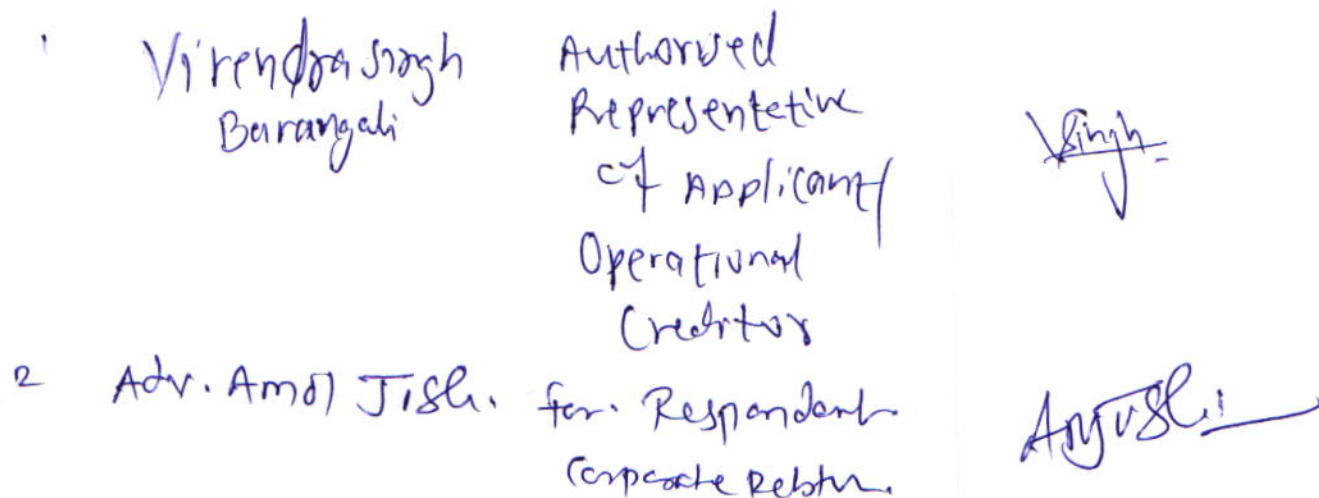 1 Virendrasingh Authorised
Barangali Representetive
of Applicant/
Operational
Creditor
VSingh
2 Adv. Amol Joshi. for. Respondent
Corporate Debtor.